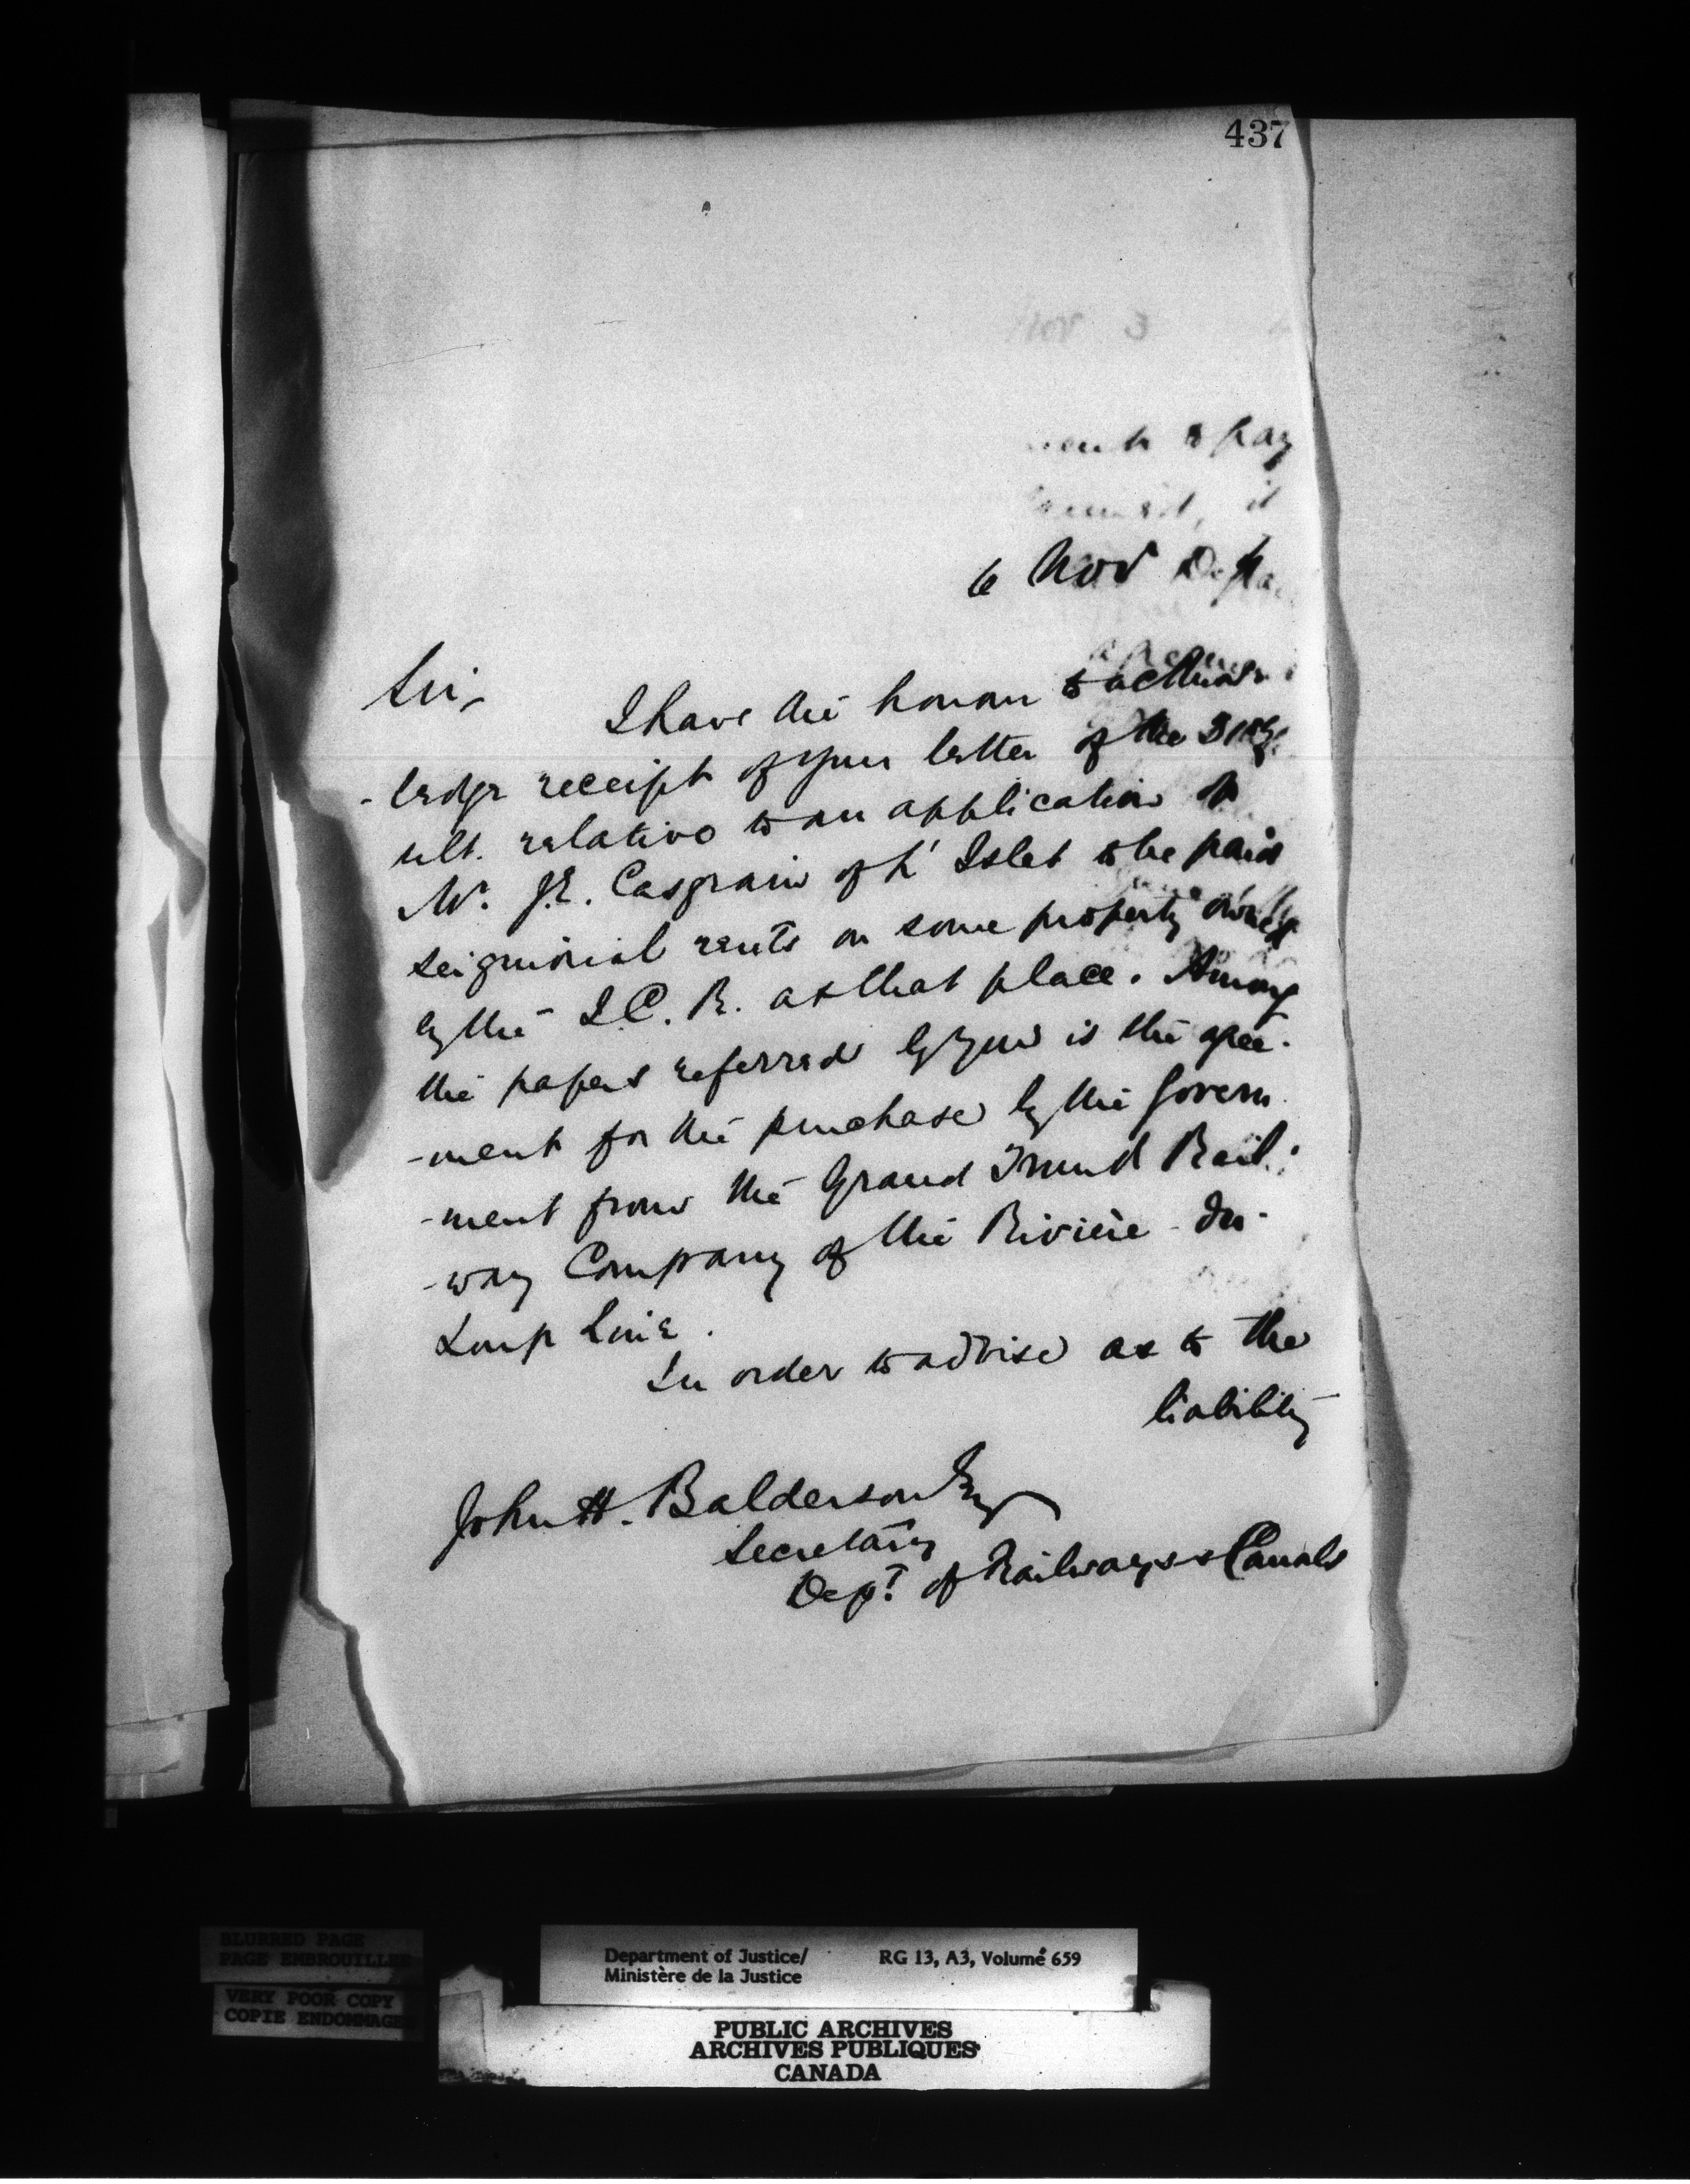 437
Nov 3
6 Nov
Sir,
I have the honour to acknow
-ledge receipt of your letter of the 31st
ult. relative to an application of
Mr. J.E. Casgrain of L'Islet to be paid
seigniorial rents on some property owned
by the I.C.R. at that place. Among
the papers referred by you is the agree-
-ment for the purchase by the Govern
-ment from the Grand Trunk Rail-
-way Company of the Rivière-du-
Loup Line.
In order to advise as to the
liability
John H. Balderson Esq
Secretary
Dept. of Railways & Canals
BLURRED PAGE
PAGE EMBROUILLEE
VERY POOR COPY
COPIE ENDOMMAGE
Department of Justice/ RG 13, A3, Volume 659
Ministère de la Justice
PUBLIC ARCHIVES
ARCHIVES PUBLIQUES
CANADA